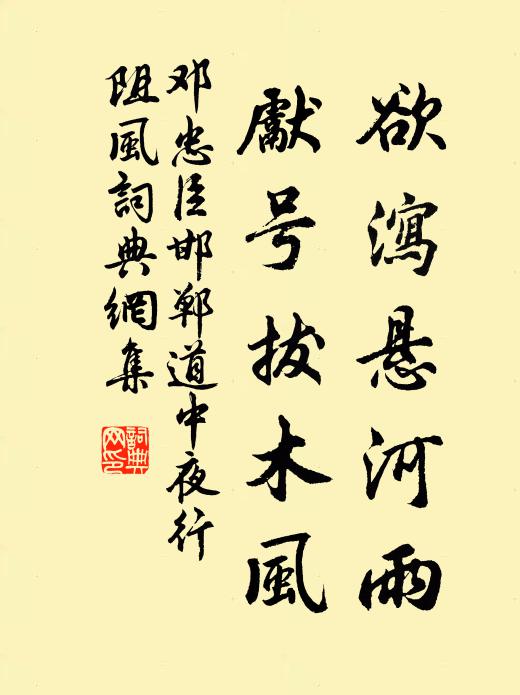 欲瀉悬河雨
獻号拔木風
邓忠臣邯鄲道中夜行
阻風詞典網集
詞典網印